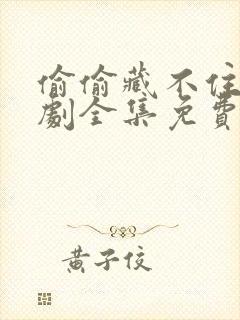 偷偷藏不住
劇全集免費
黄子佼